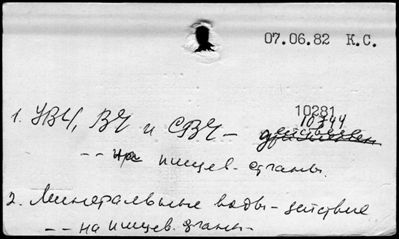 07.06.82 К.С.
10281
10344
1. УВЧ, ВЧ и СВЧ –
-- на пищев. органы.
2. Минеральные воды – действие
-- на пищев. органы.